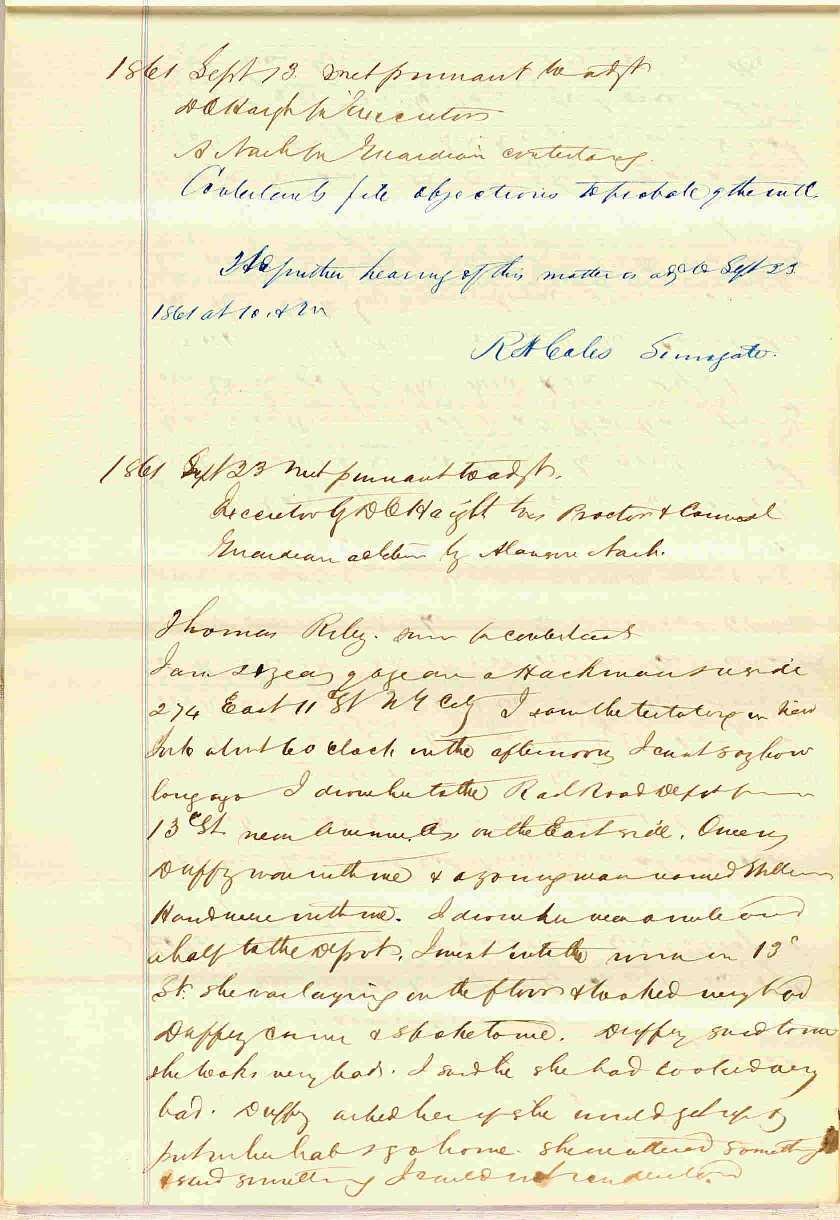 1861 Sept 13 met pursuant to adjt
D C Haight for Executors
A Nash for Guardian contestants.
Contestants file objections to probate of the will
The further hearing of this matter is adjd to Sept 23
1861 at 10 A M
R H Coles Surrogate.
1861 Sept 23 met pursuant to adjt.
Executor by D C Haight his Proctor & Counsel
Guardian ad litem by Alanson Nash.
Thomas Riley. sworn for contestants
I am years of age am a Hackman & reside
274 East 11th St N Y City I saw the testatrix in New
York about 6 O clock in the afternoon, I cannot say how
long ago I drove her to the Rail Road Depot from
13th St near Avenue A on the East side. Owen
Duffy was with me & a young man named William
Hand were with me. I drove her near a mile and
a half to the Depot. I went into the room in 13th
St. she was laying on the floor & looked very bad
Duffy came & spoke to me. Duffy said to me
she looks very bad. I said she had looked very
bad. Duffy asked her if she would get up &
put on her hat & go home. she muttered something
& said something I could not understand